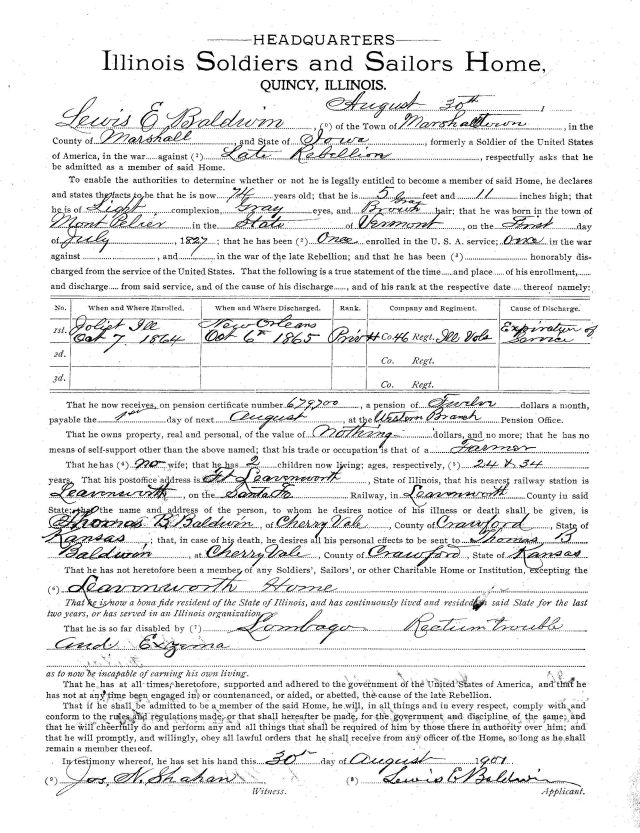 HEADQUARTERS
Illinois Soldiers and Sailors Home,
QUINCY, ILLINOIS.
August 30th ,
Lewis E Baldwin , (¹) of the Town of Marshalltown , in the
County of Marshall and State of Iowa , formerly a Soldier of the United States
of America, in the war against (²) Late Rebellion , respectfully asks that he
be admitted as a member of said Home.
To enable the authorities to determine whether or not he is legally entitled to become a member of said Home, he declares
and states the facts to be that he is now 74 years old; that he is 5 feet and 11 inches high; that
he is of Light complexion, Gray eyes, and Gray Brown hair; that he was born in the town of
Mont Pelier in the State of Vermont , on the First day
of July 1827 ; that he has been (²) Once enrolled in the U. S. A. service; Once in the war
against , and in the war of the late Rebellion; and that he has been (²) honorably dis-
charged from the service of the United States. That the following is a true statement of the time and place of his enrollment,
and discharge from said service, and of the cause of his discharge , and of his rank at the respective date thereof namely:
No. When and Where Enrolled. When and Where Discharged. Rank. Company and Regiment. Cause of Discharge.
1st. Joliet Ill New Orleans Expiration of
Oct 7, 1864 Oct 6th 1865 Priv H Co 46 Regt. Ill Vols Service
2d. Co. Regt.
3d. Co. Regt.
That he now receives, on pension certificate number 679700 a pension of Twelve dollars a month,
payable the 1st day of next August , at the Western Branch Pension Office.
That he owns property, real and personal, of the value of Nothing dollars, and no more; that he has no
means of self-support other than the above named; that his trade or occupation is that of a Farmer
That he has (⁴) no wife; that he has 2 children now living; ages, respectively, (⁵) 24 & 34
years. That his postoffice address is Ft Leavenworth , State of Illinois, that his nearest railway station is
Leavenworth , on the Santa Fe Railway, in Leavenworth County in said
State; that the name and address of the person, to whom he desires notice of his illness or death shall be given, is
Thomas B. Baldwin , of Cherry Vale , County of Crawford , State of
Kansas ; that, in case of his death, he desires all his personal effects to be sent to Thomas B
Baldwin , at Cherry Vale , County of Crawford , State of Kansas
That he has not heretofore been a member of any Soldiers', Sailors', or other Charitable Home or Institution, excepting the
(⁶) Leavenworth Home
That he is now a bona fide resident of the State of Illinois, and has continuously lived and resided in said State for the last
two years, or has served in an Illinois organization.
That he is so far disabled by (⁷) Lombago Rectum trouble
and Exzima
as to now be incapable of earning his own living.
That he has at all times, heretofore, supported and adhered to the government of the United States of America, and that he
has not at any time been engaged in, or countenanced, or aided, or abetted, the cause of the late Rebellion.
That if he shall be admitted to be a member of the said Home, he will, in all things and in every respect, comply with and
conform to the rules and regulations made, or that shall hereafter be made, for the government and discipline of the same; and
that he will cheerfully do and perform any and all things that shall be required of him by those there in authority over him; and
that he will promptly, and willingly, obey all lawful orders that he shall receive from any officer of the Home, so long as he shall
remain a member thereof.
In testimony whereof, he has set his hand this 30th day of August 1901
(⁹) Jos. N. Shahan (⁸) Lewis E Baldwin
Witness. Applicant.